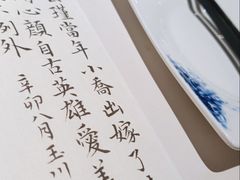 瑾當年小喬出嫁了
顏自古英雄愛美
例外 辛卯八月玉川